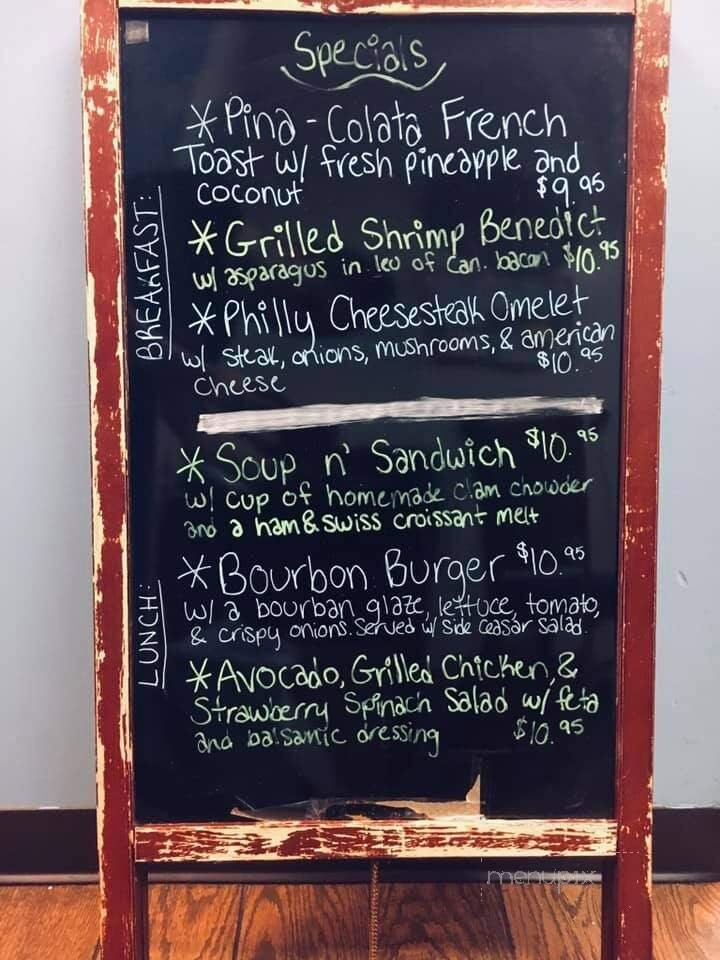 Specials
BREAKFAST:
*Pina-Colata French
Toast w/ fresh pineapple and
coconut $9.95
*Grilled Shrimp Benedict
w/ asparagus in leu of Can. bacon $10.95
*Philly Cheesesteak Omelet
w/ steak, onions, mushrooms, & american
cheese $10.95
LUNCH:
*Soup n' Sandwich $10.95
w/ cup of homemade clam chowder
and a ham & swiss croissant melt
*Bourbon Burger $10.95
w/ a bourban glaze, lettuce, tomato,
& crispy onions. Served w/ side ceasar salad.
*Avocado, Grilled Chicken, &
Strawberry Spinach Salad w/ feta
and balsamic dressing $10.95
menupix